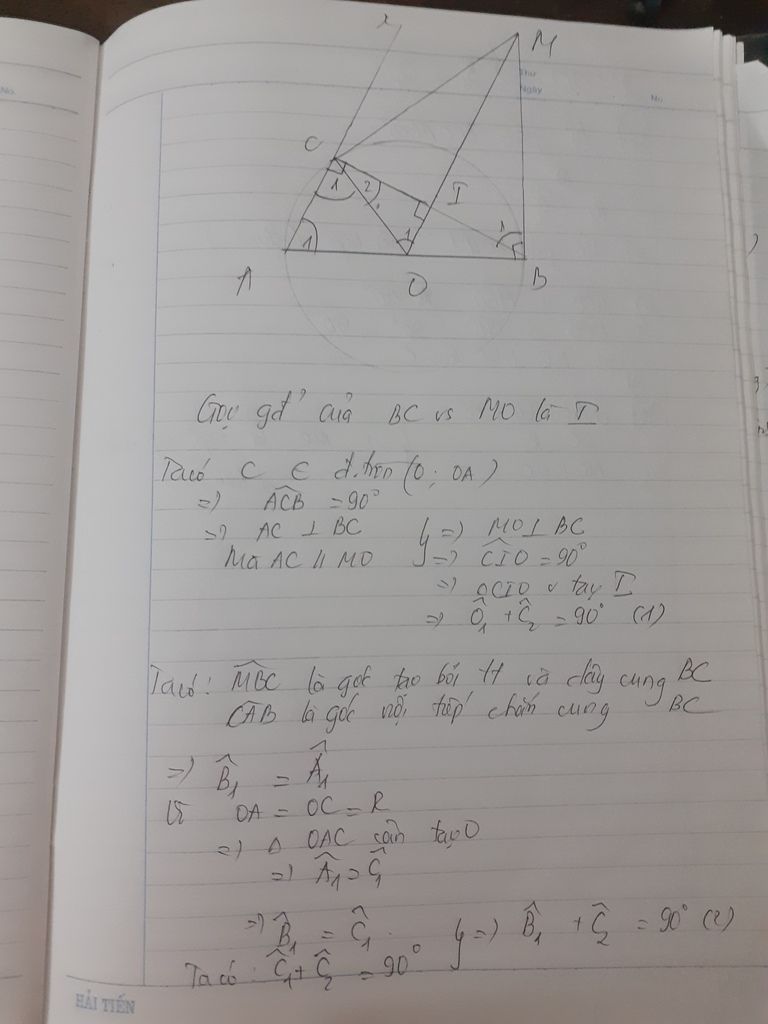 No.
x
M
Thứ
Ngày
No.
C
1
2
I
1
1
1
A
O
B
Gọi gđ' của BC vs MO là I
Ta có C ∈ đ.tròn (O; OA)
=> \widehat{ACB} = 90°
=> AC ⊥ BC } => MO ⊥ BC
Mà AC // MO => \widehat{CIO} = 90°
=> ΔCIO v tại I
=> \hat{O}_1 + \hat{C}_2 = 90° (1)
Ta có: \widehat{MBC} là góc tạo bởi tt và dây cung BC
\widehat{CAB} là góc nội tiếp chắn cung BC
=> \hat{B}_1 = \hat{A}_1
Vì OA = OC = R
=> Δ OAC cân tại O
=> \hat{A}_1 = \hat{C}_1
=> \hat{B}_1 = \hat{C}_1 . } => \hat{B}_1 + \hat{C}_2 = 90° (2)
Ta có : \hat{C}_1 + \hat{C}_2 = 90°
HẢI TIẾN